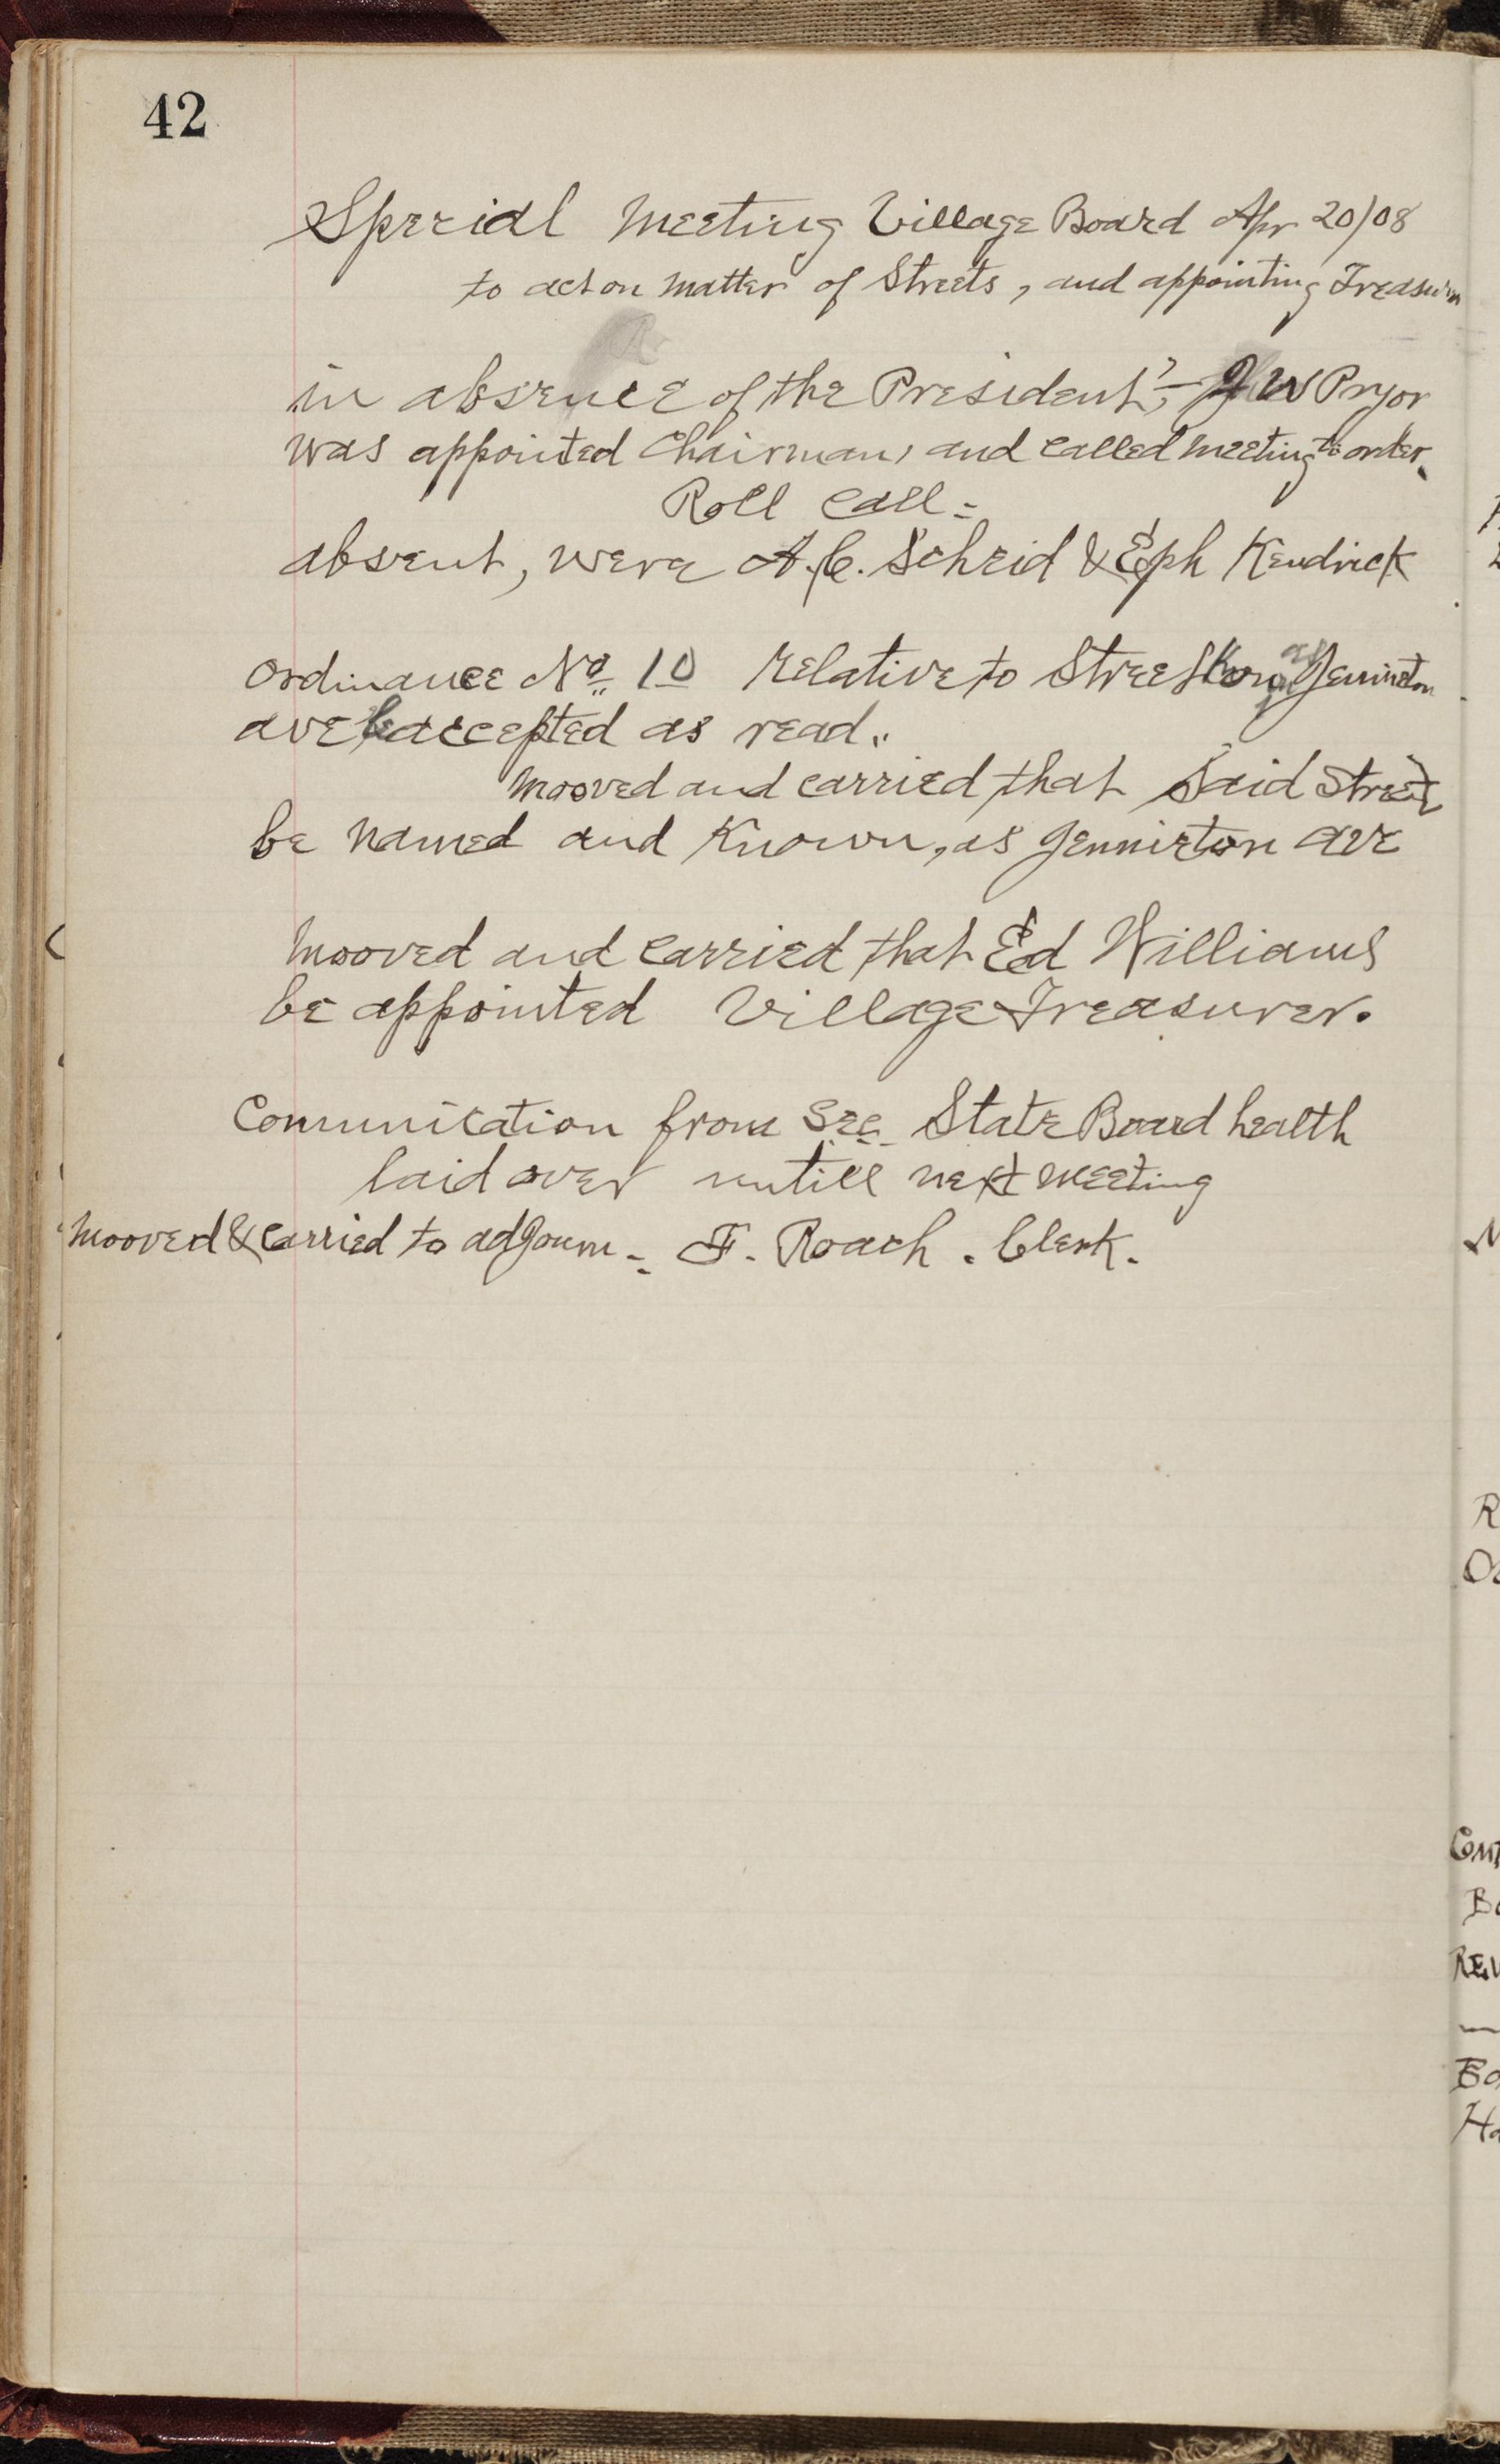 42
Special Meeting Village Board Apr 20/08
to act on Matter of Streets, and appointing Treasurer
in absence of the President, - J W Pryor
was appointed Chairman, and called meeting to order.
Roll Call =
absent, were A. C. Scheid & Eph Kendrick
Ordinance No 10 relative to Street Known as Jennieton
ave be accepted as read.
Mooved and carried that Said Street
be Named and Known, as Jennieton ave
Mooved and carried that Ed Williams
be appointed Village Treasurer.
Comunication from Sec. State Board health
laid over untill next meeting
Mooved & Carried to adjourn - F. Roach . Clerk.